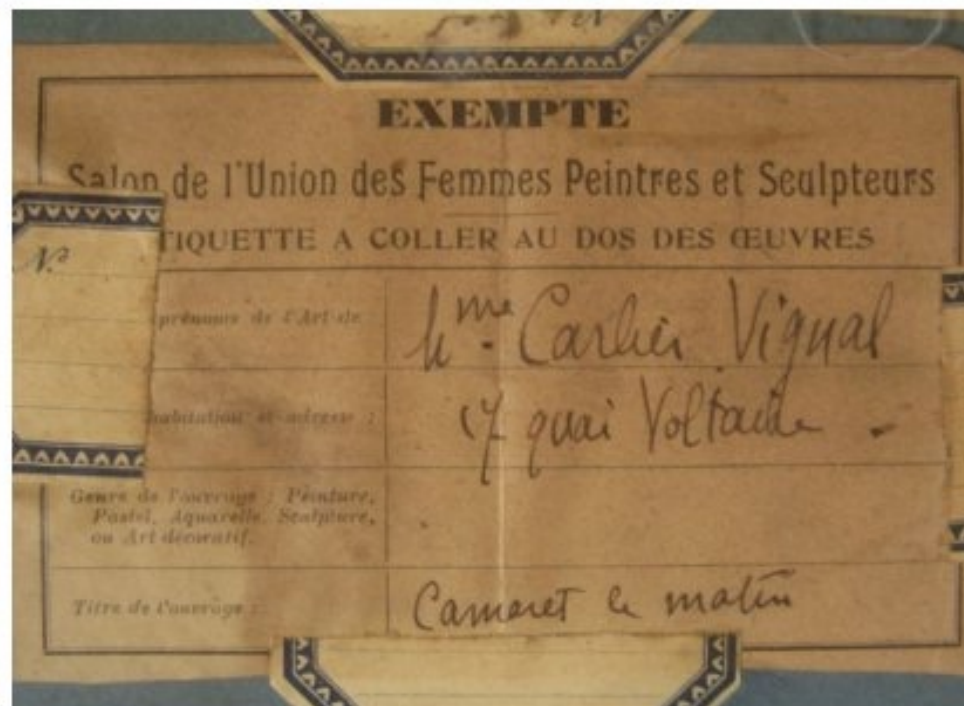 EXEMPTE
Salon de l'Union des Femmes Peintres et Sculpteurs
TIQUETTE A COLLER AU DOS DES ŒUVRES
Nº
prénoms de l'Art
Mme Carlier Vignal
habitation et adresse :
17 quai Voltaire .
Genre de l'ouvrage : Peinture,
Pastel, Aquarelle, Sculpture,
ou Art décoratif.
Titre de l'ouvrage :
Camaret le matin